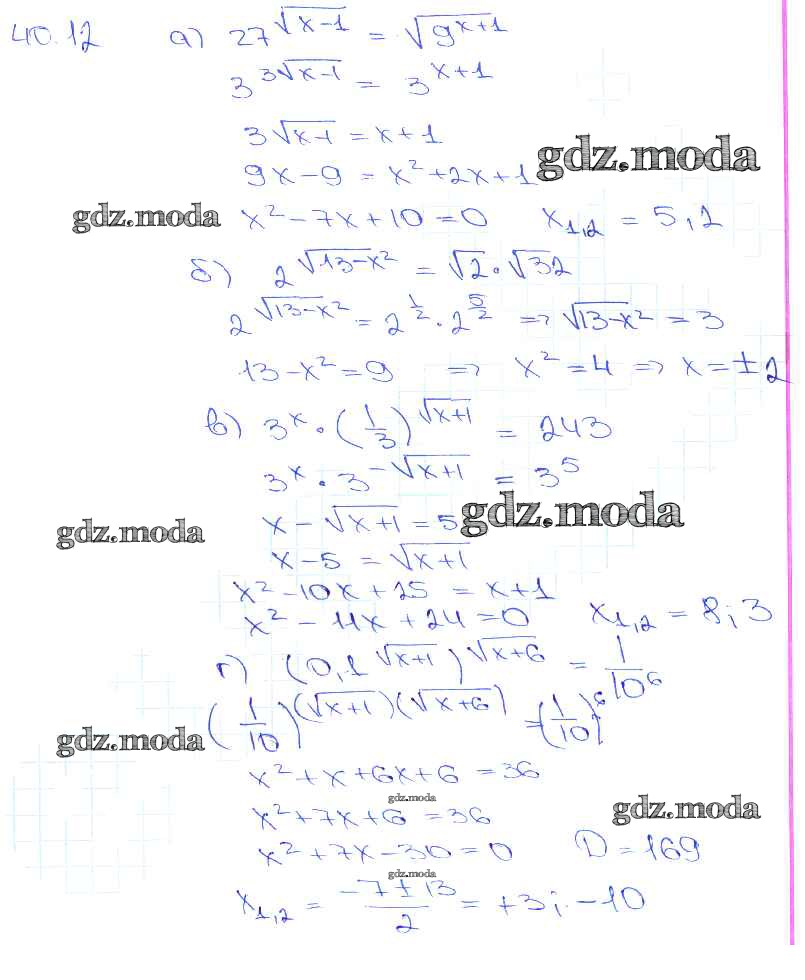 40.12 а) 27^√(x-1) = √(9^(x+1))
3^(3√(x-1)) = 3^(x+1)
3√(x-1) = x+1
gdz.moda
9x-9 = x²+2x+1
gdz.moda
x²-7x+10=0 x₁,₂ = 5;2
б) 2^√(13-x²) = √2·√32
2^√(13-x²) = 2^(1/2)·2^(5/2) => √(13-x²) = 3
13-x²=9 => x²=4 => x=±2
в) 3^x·(1/3)^√(x+1) = 243
3^x·3^(-√(x+1)) = 3^5
gdz.moda
x-√(x+1) = 5
gdz.moda
x-5 = √(x+1)
x²-10x+25 = x+1
x²-11x+24=0 x₁,₂ = 8;3
г) (0,1^√(x+1))^√(x+6) = 1/10⁶
(1/10)^((√(x+1))(√(x+6))) = (1/10)⁶
gdz.moda
x²+x+6x+6 = 36
gdz.moda
x²+7x+6 = 36
gdz.moda
x²+7x-30=0 D=169
gdz.moda
x₁,₂ = (-7±13)/2 = +3; -10